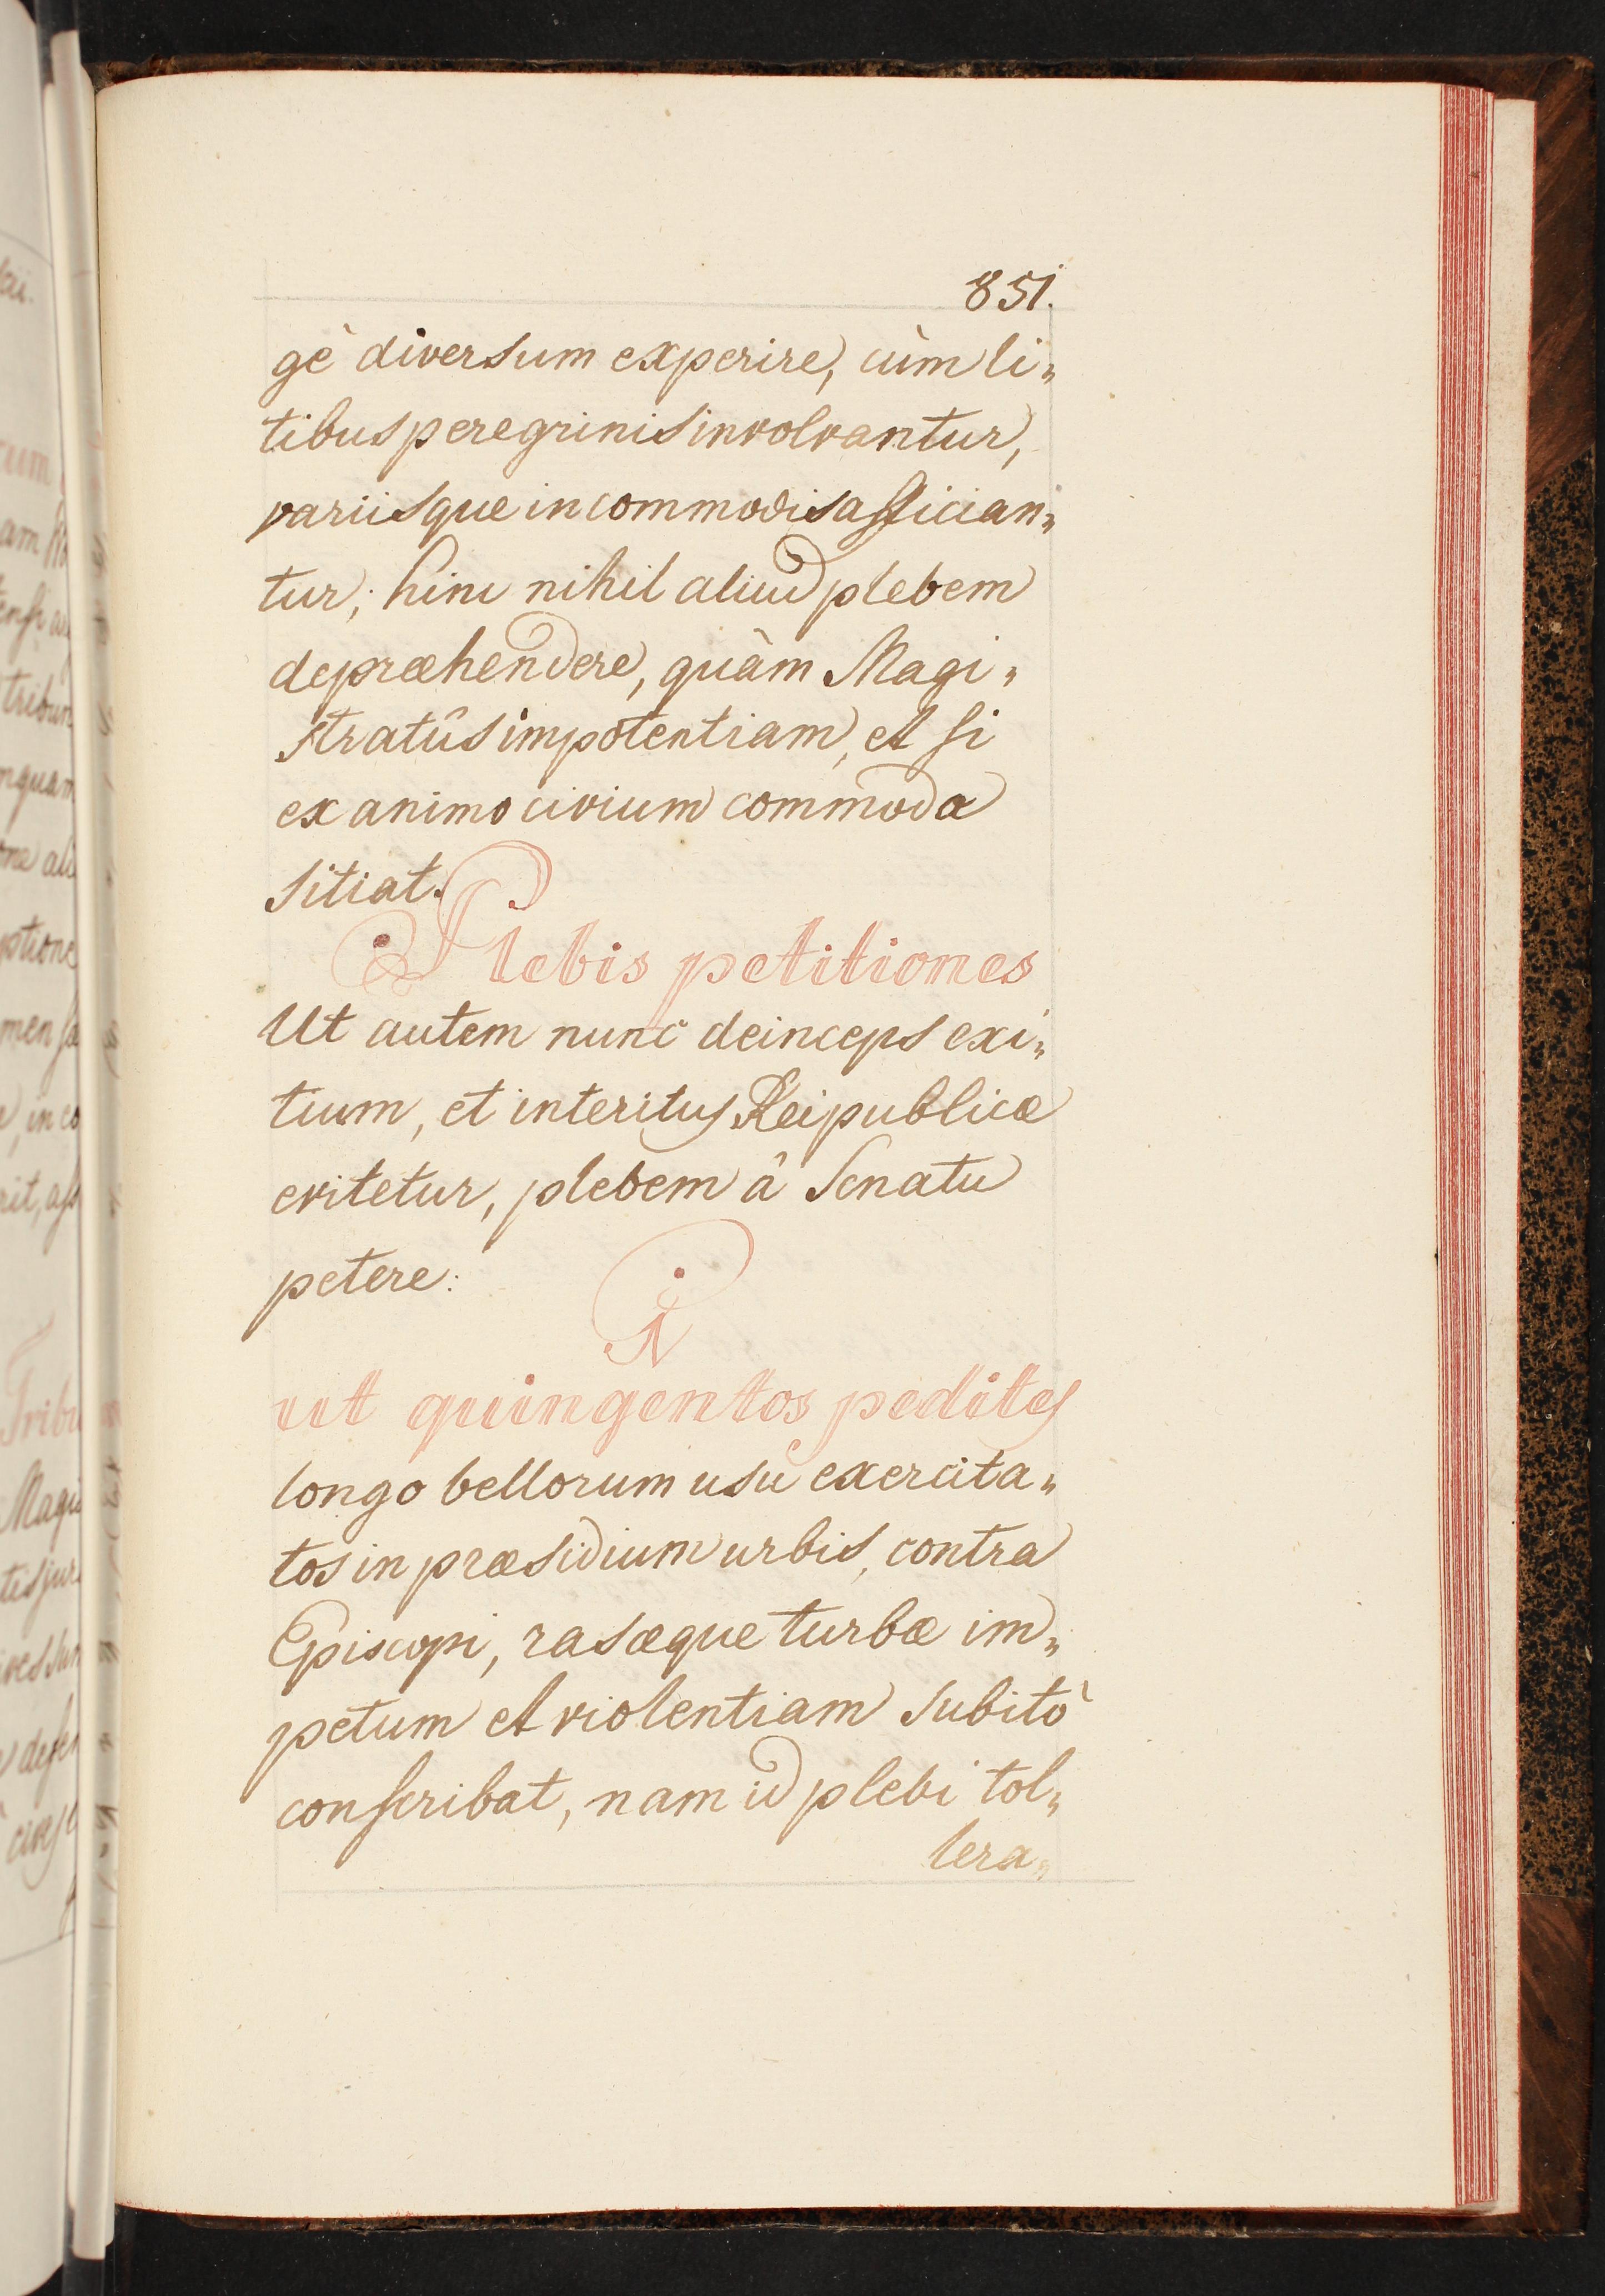 851.
gè diversum experire, cùm li„
tibus peregrinis involvantur,
variisque incommodis affician„
tur; hinc nihil aliud plebem
depræhendere, quàm Magi„
stratûs impotentiam, et si
ex animo civium commoda
sitiat.
Plebis petitiones
Ut autem nunc deinceps exi„
tium, et interitus Reipublicæ
evitetur, plebem â Senatu
petere:
1
ut quingentos pedites
longo bellorum usu exercita„
tos in præsidium urbis, contra
Episcopi, rasæque turbæ im„
petum et violentiam subitò
conscribat, nam id plebi tol„
lera„